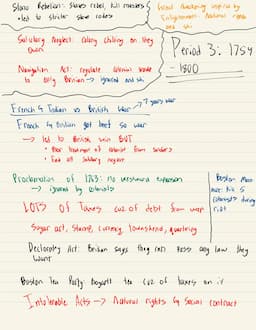 Stono Rebellion: Slaves rebel, kill masters
led to stricter slave codes
Great Awakening inspired by
Enlightenment: Natural rights
and shi
Salutary Neglect: colony chilling on they
own
Navigation Act: regulate colonial trade
to only Britain → ignored and shi
Period 3: 1754
- 1800
French & Indian vs British War → 7 years war
French & Britian got beef so war
→ led to British win BUT
• Poor treatment of colonist from soldiers
• End of salutary neglect
Proclamation of 1763: no westward expansion
→ ignored by colonists
Boston Mass
acre: kills 5
colonists during
riot
LOTS of Taxes cuz of debt from war
Sugar act, stamp, currency, townshend, quartering
Declaratory Act: Britian says they can pass any law they
want
Boston Tea Party boycott tea cuz of taxes on it
Intolerable Acts → Natural rights & Social contract